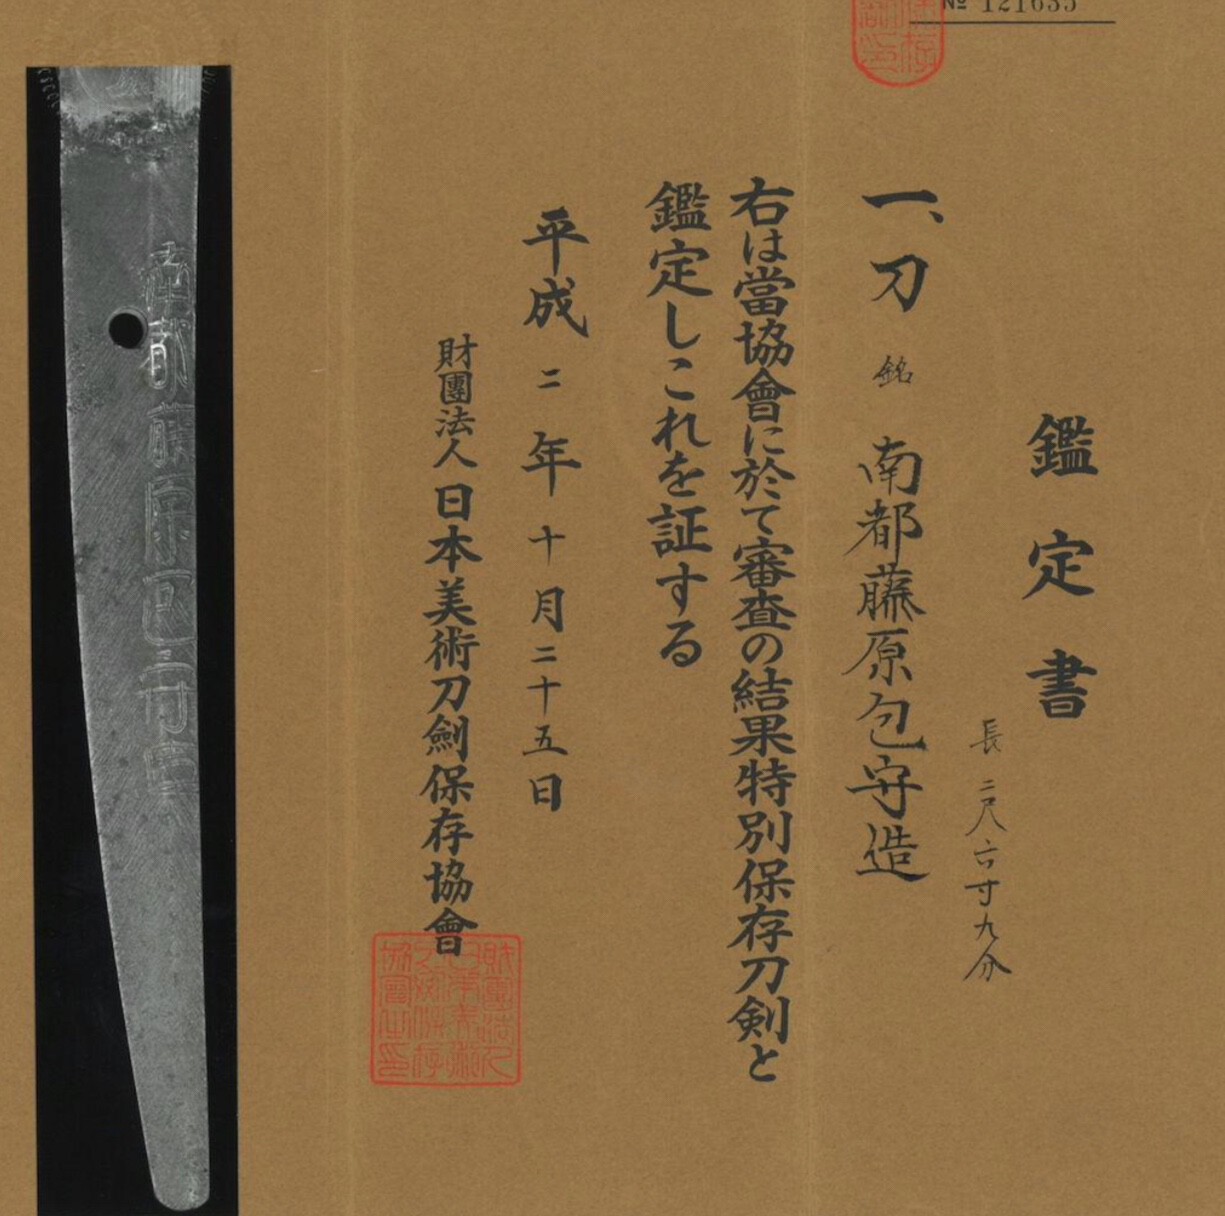 № 121635
鑑定書
長 二尺六寸九分
一、刀 銘 南都藤原包守造
右は當協會に於て審査の結果特別保存刀剣と
鑑定しこれを証する
平成二年十月二十五日
財團法人日本美術刀劍保存協會
南都藤原包守造